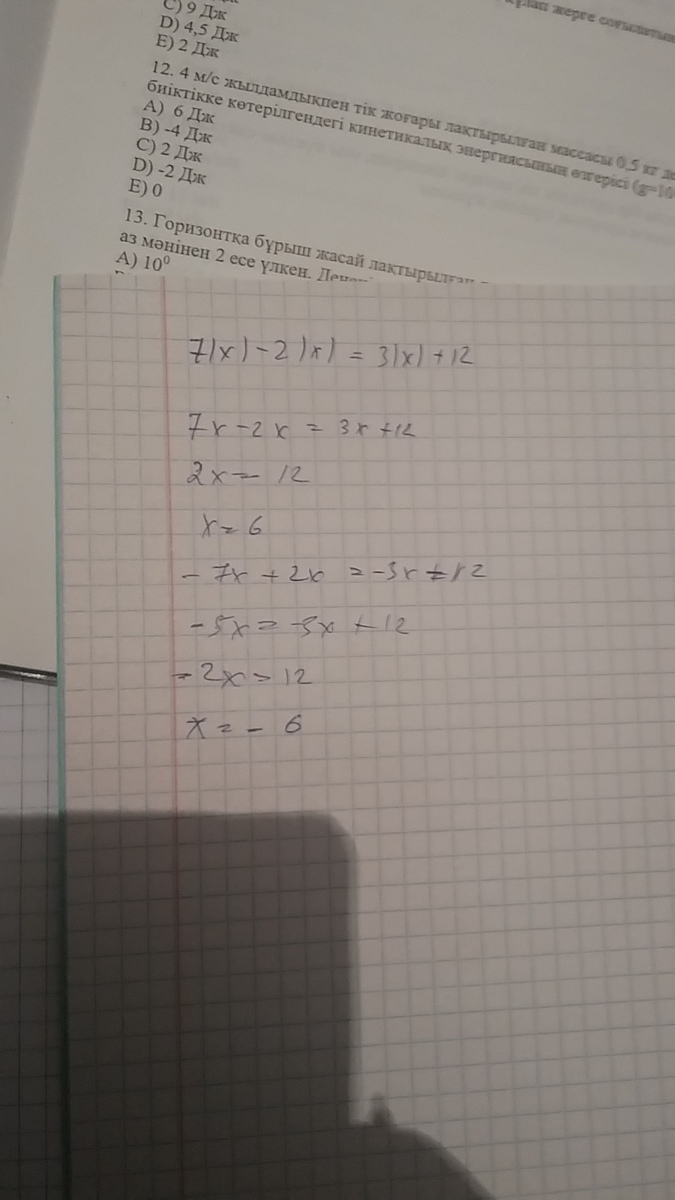 C) 9 Дж
D) 4,5 Дж
E) 2 Дж
жерге соғылатын
12. 4 м/с жылдамдықпен тік жоғары лақтырылған массасы 0,5 кг
биіктікке көтерілгендегі кинетикалық энергиясының өзгерісі (g=10
A) 6 Дж
B) -4 Дж
C) 2 Дж
D) -2 Дж
E) 0
13. Горизонтқа бұрыш жасай лақтырылған
аз мәнінен 2 есе үлкен.
A) 10⁰
7|x| - 2|x| = 3|x| + 12
7x - 2x = 3x + 12
2x = 12
x = 6
- 7x + 2x = -3x + 12
- 5x = -3x + 12
- 2x = 12
x = - 6